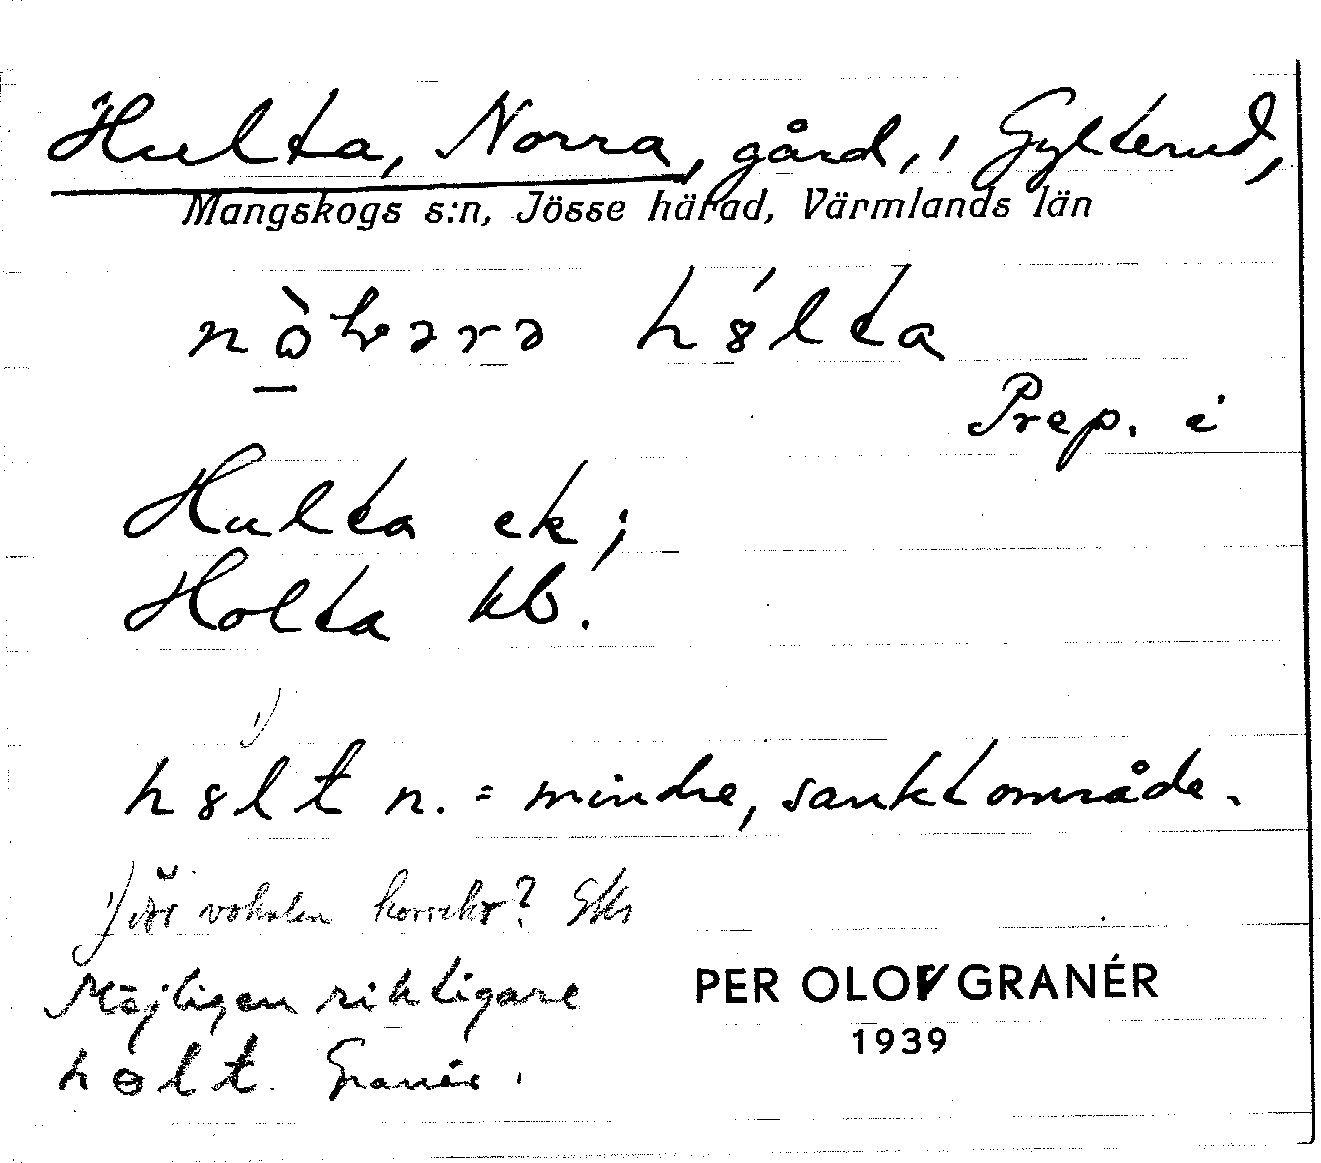 Hulta, Norra, gård, i Gylterud,
Mangskogs s:n, Jösse härad, Värmlands län
hȣ́lta
Prep. i
Hulta ek;
Holta kb.
1)
hȣlt n. = mindre, sankt område.
1) Är vokalen korrekt? Eks
Möjligen riktigare
hɵlt. Granér.
PER OLOV GRANÉR
1939